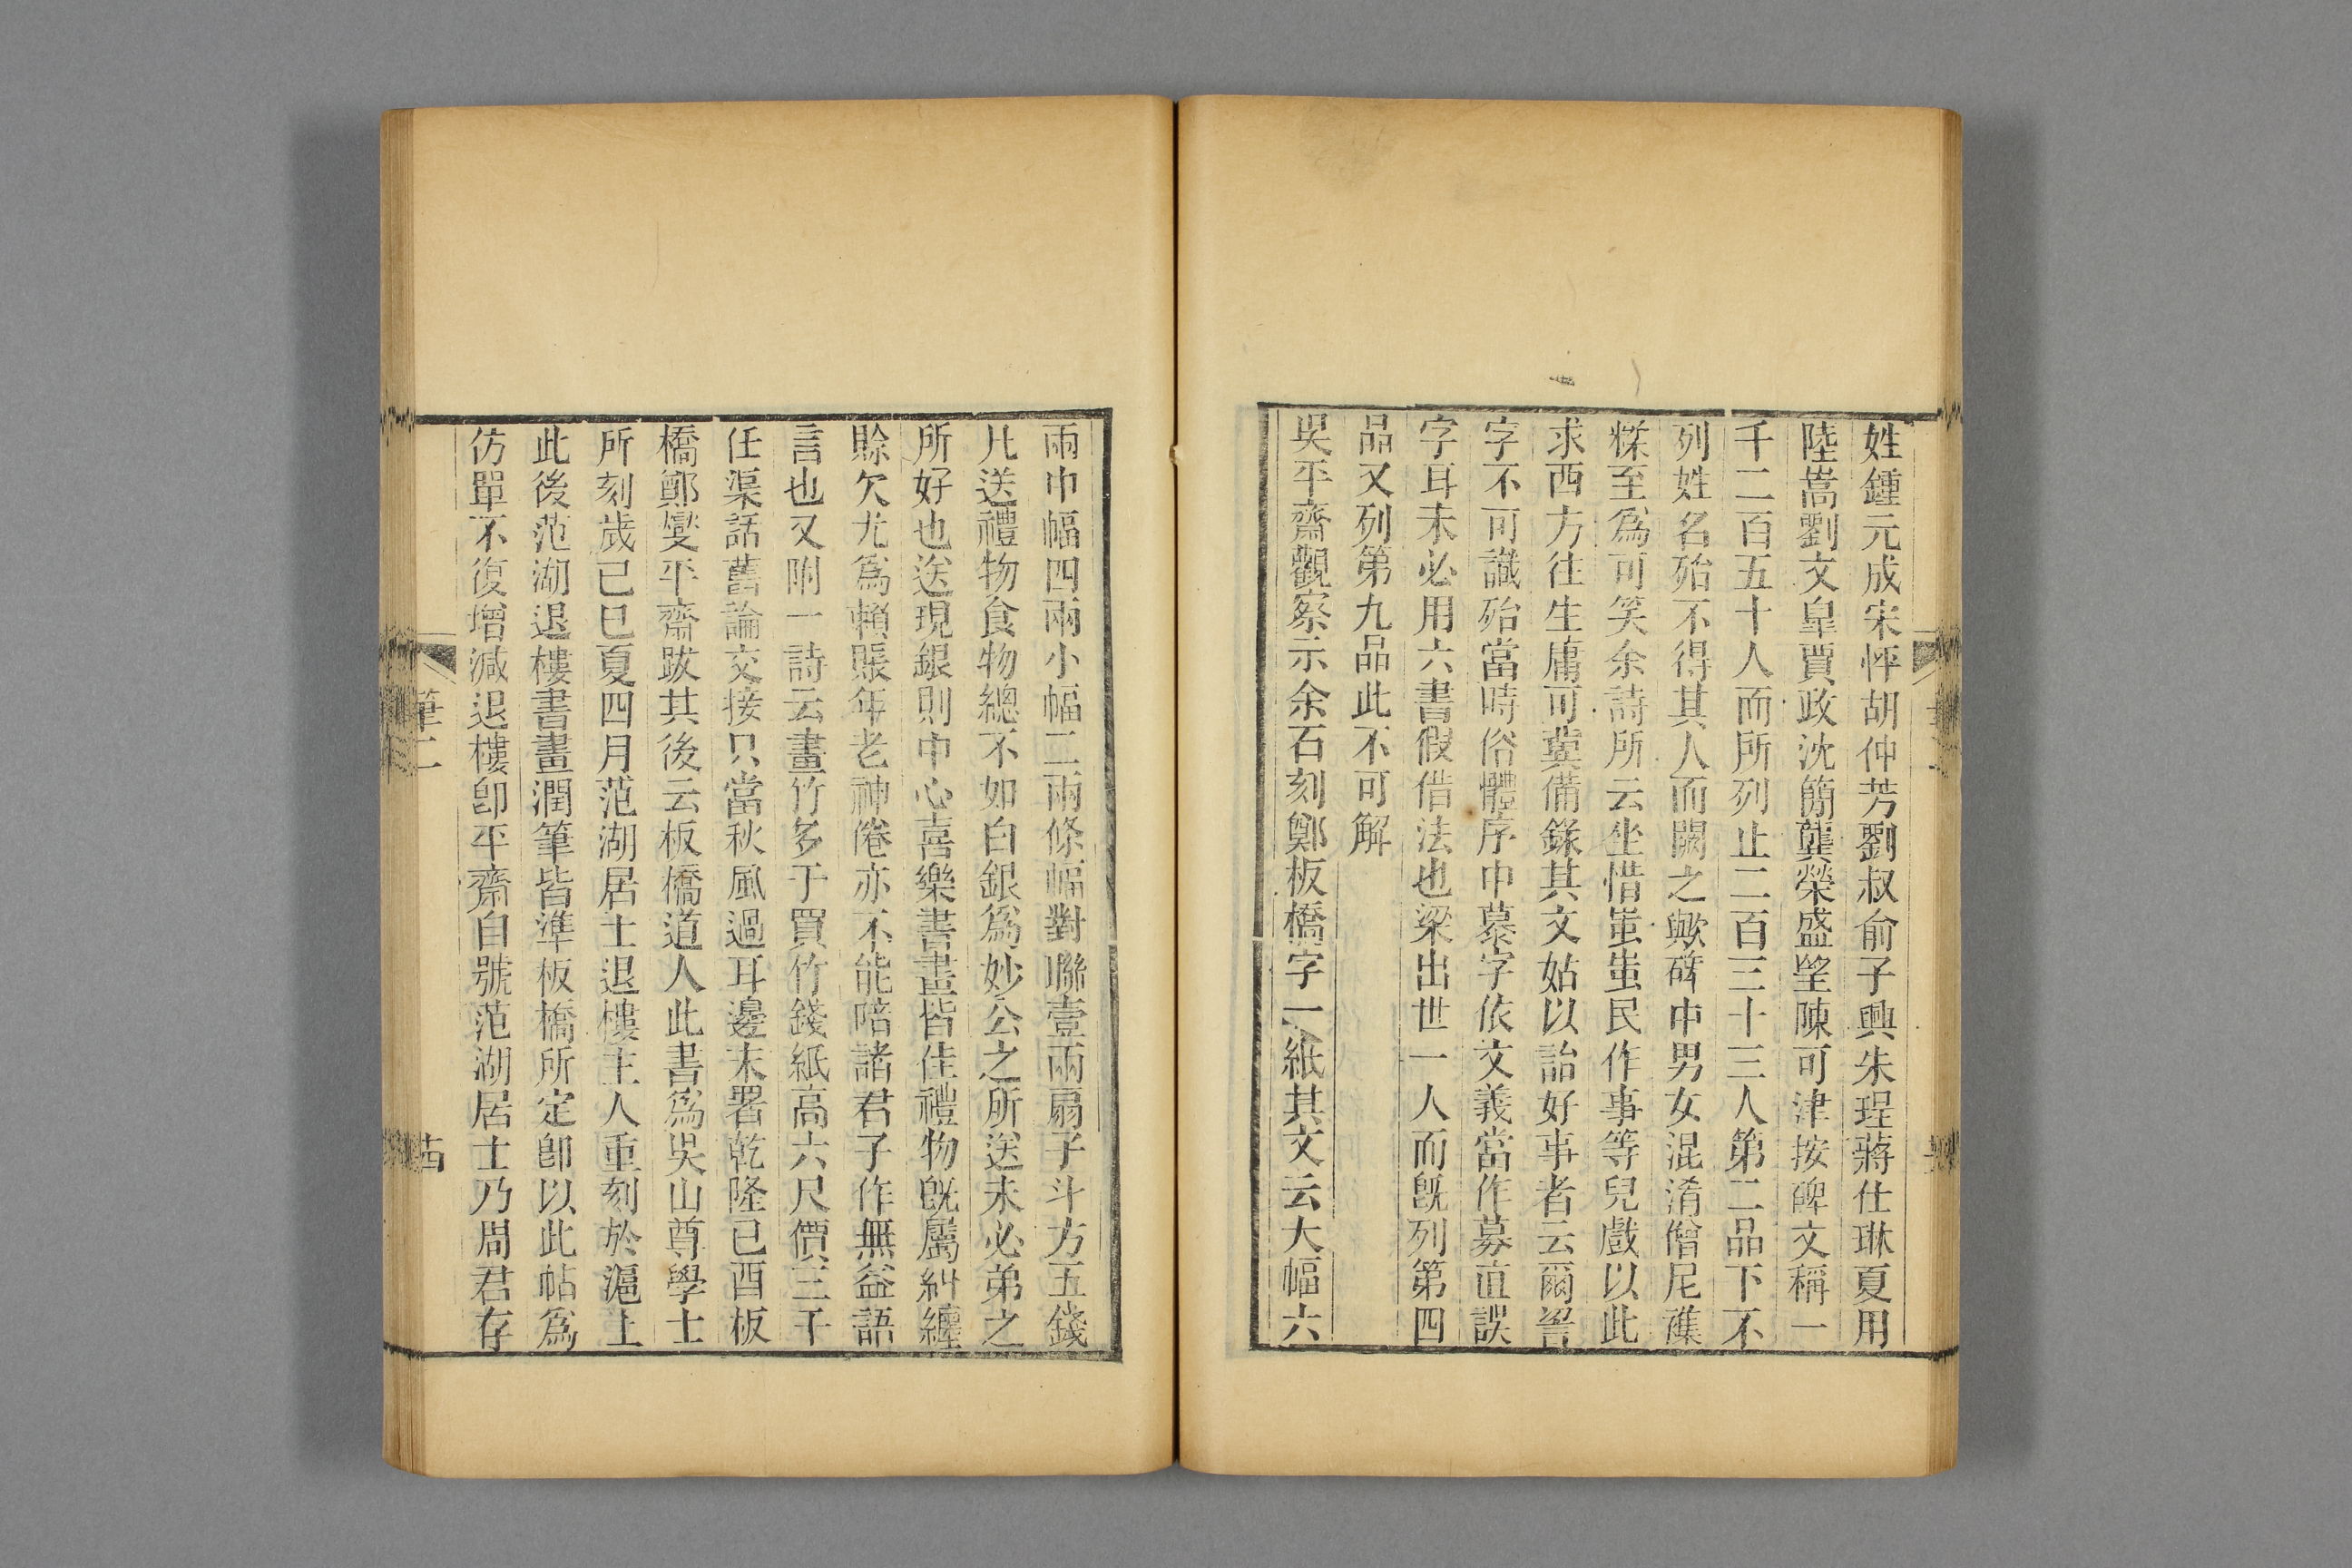 姓鍾元成宋怦胡仲芳劉叔俞子興朱珵蔣仕琳夏用
陸嵩劉文皐賈政沈簡龔榮盛堅陳可津按碑文稱一
千二百五十人而所列止二百三十三人第二品下不
列姓名殆不得其人而闕之歟碑中男女混淆僧尼襍
糅至爲可笑余詩所云坐惜蚩蚩民作事等兒戲以此
求西方往生庸可冀備錄其文姑以詒好事者云爾
字不可識殆當時俗體序中慕字依文義當作募直誤
字耳未必用六書假借法也梁出世一人而旣列第四
品又列第九品此不可解
吳平齋觀察示余石刻鄭板橋字一紙其文云大幅六
兩中幅四兩小幅二兩條幅對聯壹兩扇子斗方五錢
凡送禮物食物總不如白銀爲妙公之所送未必弟之
所好也送現銀則中心喜樂書畫皆佳禮物旣屬糾纏
賒欠尤爲賴賬年老神倦亦不能陪諸君子作無益語
言也又附一詩云畫竹多于買竹錢紙高六尺價三千
任渠話舊論交接只當秋風過耳邊末署乾隆己酉板
橋鄭燮平齋跋其後云板橋道人此書爲吳山尊學士
所刻歲己巳夏四月范湖居士退樓主人重刻於滬上
此後范湖退樓書畫潤筆皆準板橋所定卽以此帖爲
仿單不復增減退樓卽平齋自號范湖居士乃周君存
筆二